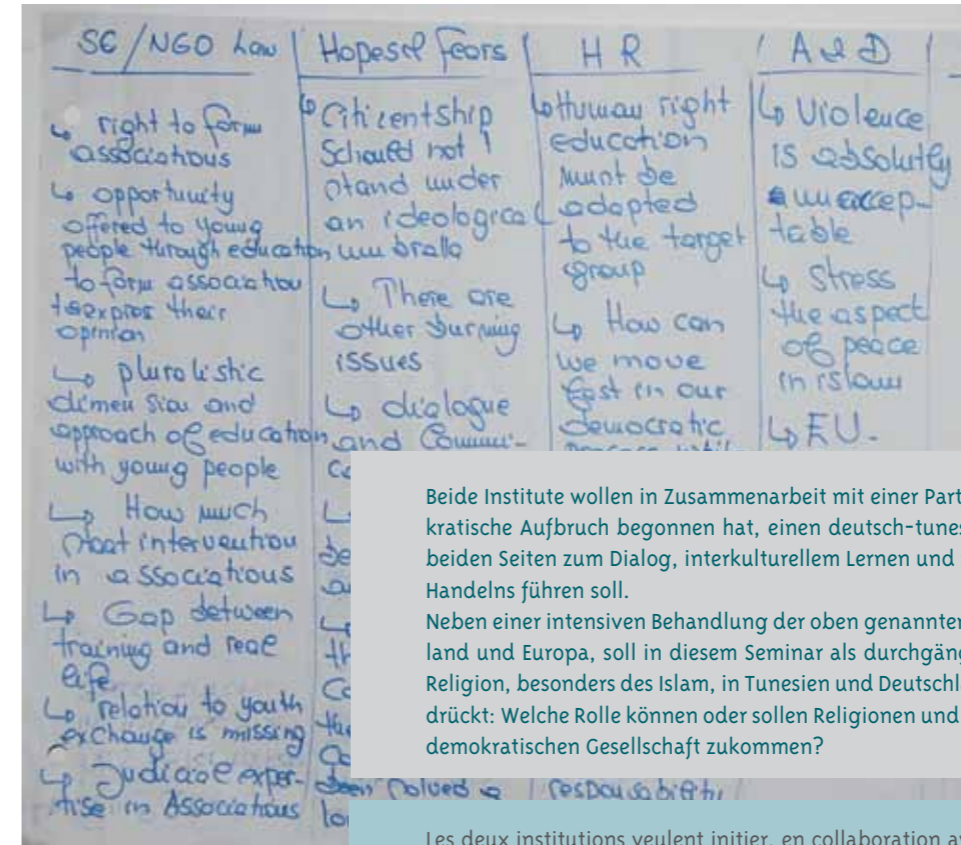 SC/NGO Law
right to form
associations
opportunity
offered to young
people through education
to form association
to expres their
opinion
pluralistic
dimension and
approach of education
with young people
How much
intervention
in associations
Gap between
training and real
life
relation to youth
exchange is missing
Judicial exper-
tise in Associations
Hopes & Fears
Citizentship
Schould not
stand under
an ideological
umbralla
There are
other burning
issues
dialogue
and Commu-
HR
Human right
education
must be
adapted
to the target
group
How can
we move
fast in our
democratic
responsability
A & D
Violence
is absolutly
unaccep-
table
Stress
the aspect
of peace
in islam
EU.
Beide Institute wollen in Zusammenarbeit mit einer Part
kratische Aufbruch begonnen hat, einen deutsch-tunes
beiden Seiten zum Dialog, interkulturellem Lernen und
Handelns führen soll.
Neben einer intensiven Behandlung der oben genannten
land und Europa, soll in diesem Seminar als durchgäng
Religion, besonders des Islam, in Tunesien und Deutschl
drückt: Welche Rolle können oder sollen Religionen und
demokratischen Gesellschaft zukommen?
Les deux institutions veulent initier, en collaboration a